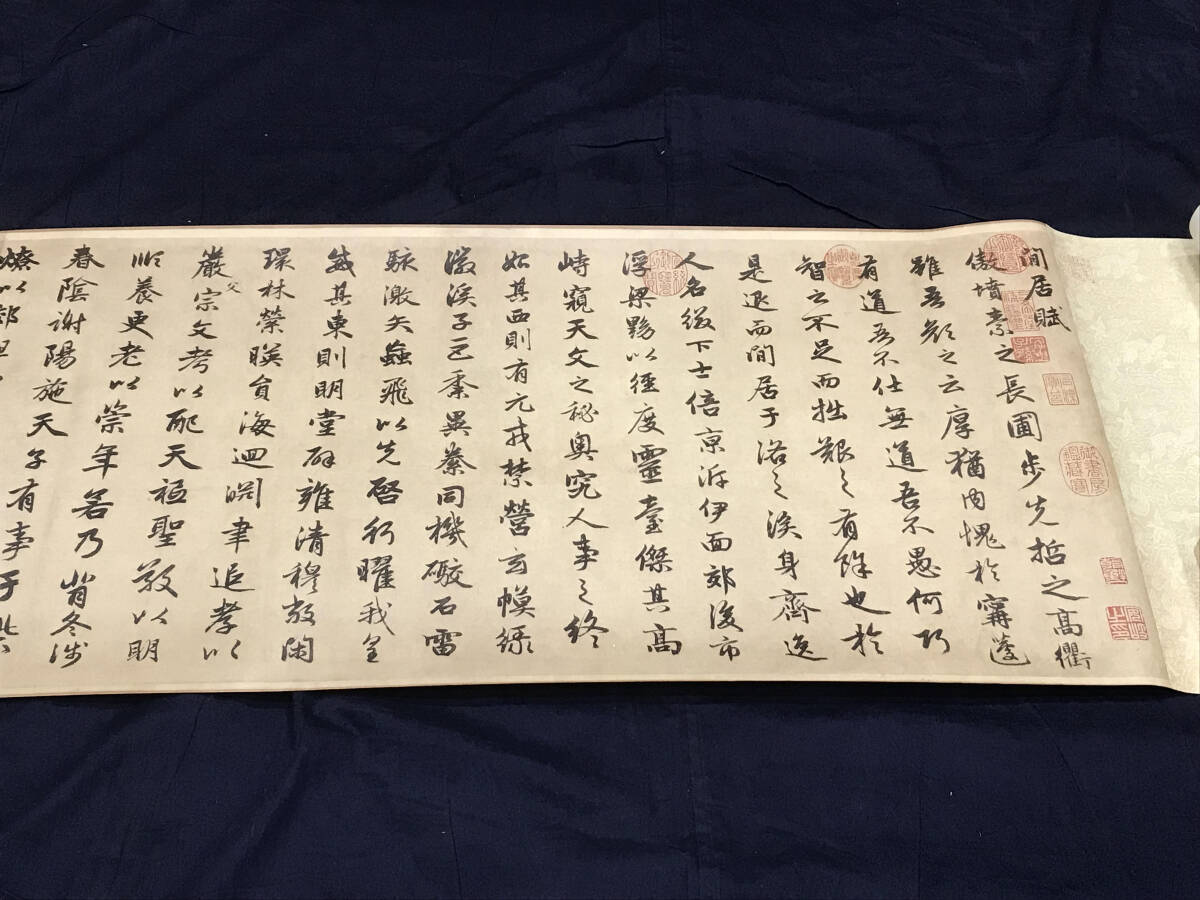 閒居賦
傲墳素之長圃步先哲之高衢
雖吾顏之云厚猶内愧於甯蘧
有道吾不仕無道吾不愚何巧
智之不足而拙艱之有餘也於
是退而閒居于洛之涘身齊逸
人名綴下士倍京泝伊面郊後市
浮梁黝以徑度靈臺傑其高
峙窺天文之秘奥究人事之終
始其西則有元戎禁營玄幙綠
徽溪子巨黍異絭同機礮石雷
駭激矢蝱飛以先啓行曜我皇
威其東則明堂辟雍清穆敞閑
環林縈暎負海迴淵聿追孝以
嚴父宗文考以配天祗聖敬以明
順養更老以崇年若乃背冬涉
春陰謝陽施天子有事于柴
燎以郊